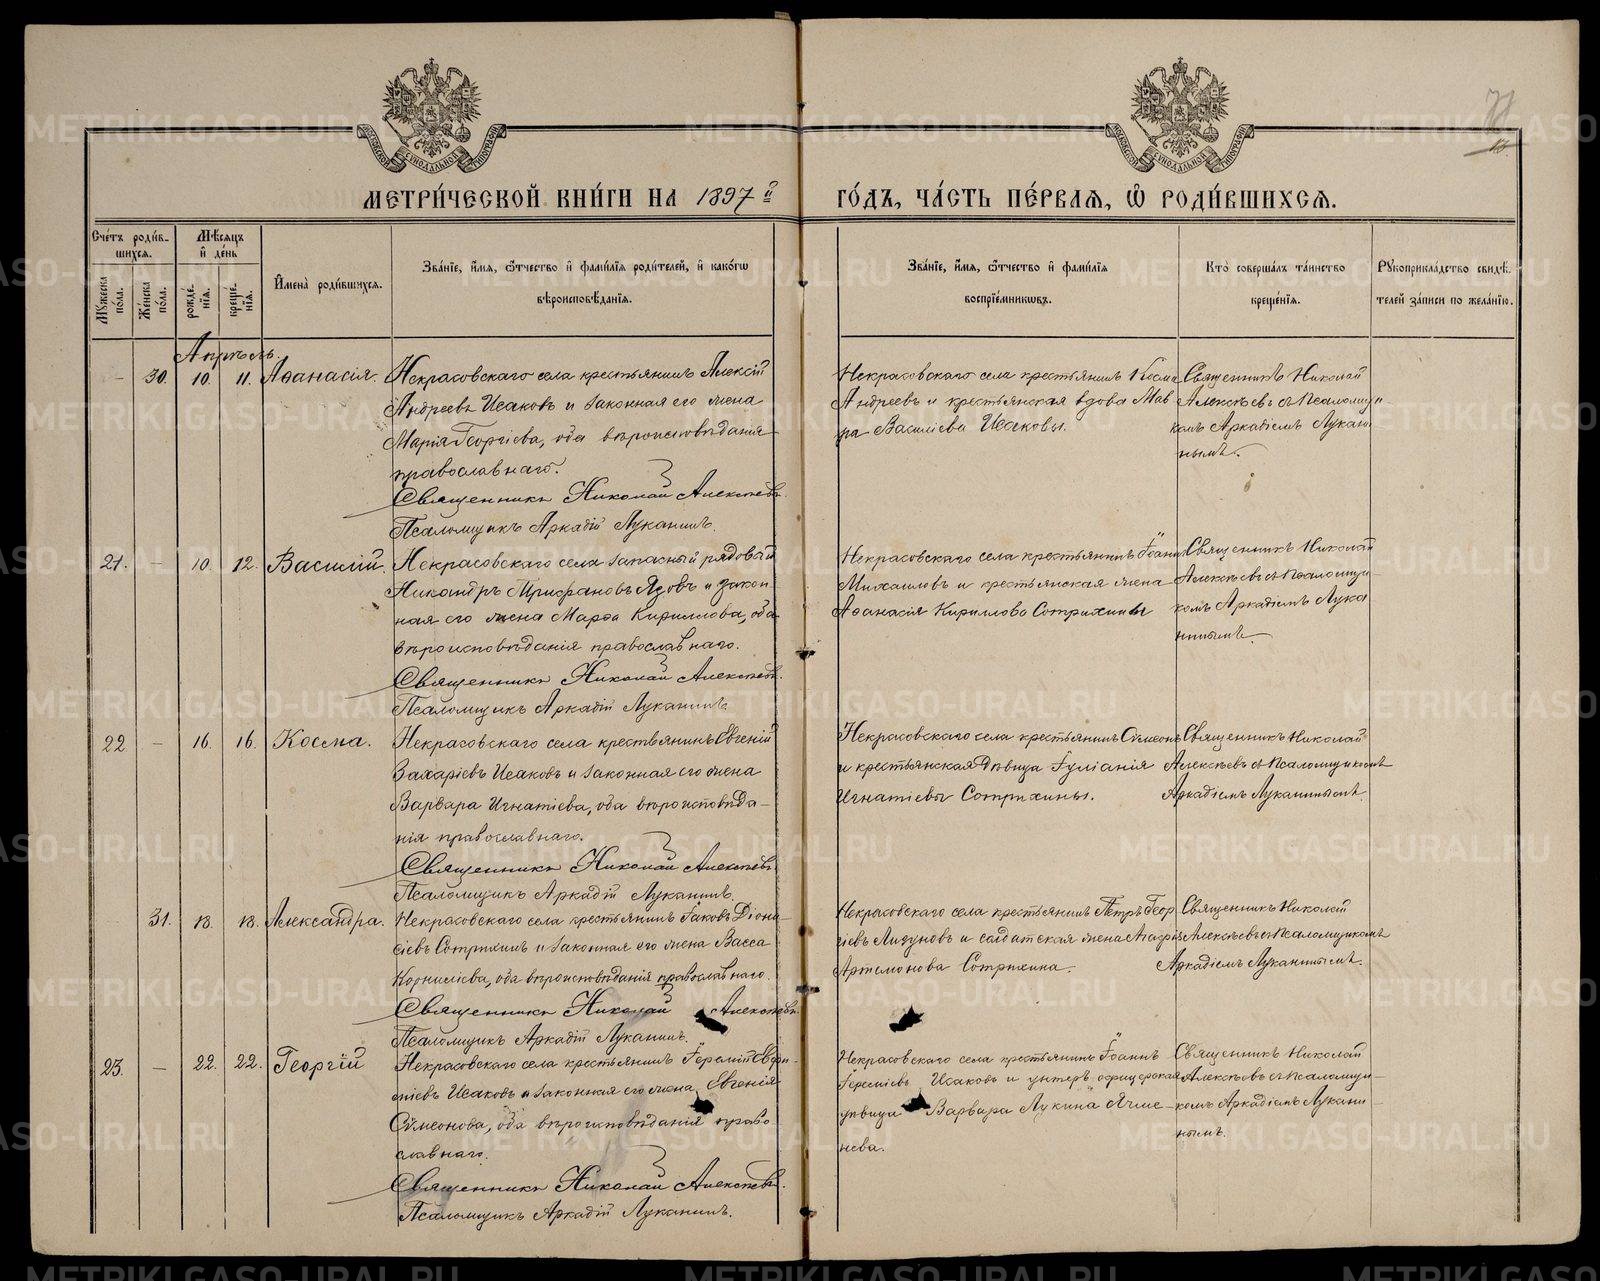 МЕТРИ́ЧЕСКОЙ КНИ́ГИ НА 1897 й ГО́ДЪ, ЧА́СТЬ ПЕ́РВАѦ, Ѽ РОДИ́ВШИХСѦ.
МОСКОВСКОЙ СѴНОДАЛЬНОЙ ТИПОГРАФІИ
МОСКОВСКОЙ СѴНОДАЛЬНОЙ ТИПОГРАФІИ
Сче́тъ роди́в-
шихсѧ.
Мꙋжеска по́ла.
Же́нска по́ла.
Мѣ́сѧцъ
и҆ де́нь
рожде́-
нїѧ.
креще́-
нїѧ.
И҆мена̀ роди́вшихсѧ.
Зва́нїе, и҆́мѧ, ѻ҆́тчество и҆ фами́лїѧ роди́телей, и҆ како́гѡ
вѣроисповѣ́данїѧ.
Зва́нїе, и҆́мѧ, ѻ҆́тчество и҆ фами́лїѧ
воспрїе́мникѡвъ.
Кто̀ соверша́лъ та́инство
креще́нїѧ.
Рꙋкоприкла́дство свидѣ́-
телей за́писи по жела́нїю.
Апрѣль.
– 30. 10. 11. Аѳанасія.
Некрасовскаго села крестьянинъ Алексій
Андреевъ Исаковъ и законная его жена
Марія Георгіева, оба вѣроисповѣданія
православнаго.
Священникъ Николай Алексѣевъ.
Псаломщикъ Аркадій Луканинъ.
Некрасовскаго села крестьянинъ Косма
Андреевъ и крестьянская вдова Мав
ра Василіева Исаковы.
Священникъ Николай
Алексѣевъ съ Псаломщи-
комъ Аркадіемъ Лукани
нымъ.
21. – 10. 12. Василій.
Некрасовскаго села запасный рядовый
Никандръ Трифановъ Язовъ и закон
ная его жена Марѳа Кириллова, оба
вѣроисповѣданія православнаго.
Священникъ Николай Алексѣевъ.
Псаломщикъ Аркадій Луканинъ
Некрасовскаго села крестьянинъ Іоаннъ
Михаиловъ и крестьянская жена
Аѳанасія Кириллова Сотрихины
Священникъ Николай
Алексѣевъ съ Псаломщи-
комъ Аркадіемъ Лука
нинымъ.
22 – 16. 16. Косма.
Некрасовскаго села крестьянинъ Евгеній
Захаріевъ Исаковъ и законная его жена
Варвара Игнатіева, оба вѣроисповѣда-
нія православнаго.
Священникъ Николай Алексѣевъ.
Псаломщикъ Аркадій Луканинъ.
Некрасовскаго села крестьянинъ Сѵмеонъ
и крестьянская дѣвица Іуліанія
Игнатіевы Сотрихины.
Священникъ Николай
Алексѣевъ съ Псаломщикомъ
Аркадіемъ Луканинымъ.
31. 18. 18. Александра.
Некрасовскаго села крестьянинъ Іаковъ Діони-
сіевъ Сотрихинъ и законная его жена Васса
Корниліева, оба вѣроисповѣданія православнаго.
Священникъ Николай Алексѣевъ.
Псаломщикъ Аркадій Луканинъ.
Некрасовскаго села крестьянинъ Петръ Геор
гіевъ Лизуновъ и солдатская жена Агафія
Артемонова Сотрихина.
Священникъ Николай
Алексѣевъ съ Псаломщикомъ
Аркадіемъ Луканинымъ.
23. – 22. 22. Георгій
Некрасовскаго села крестьянинъ Іеремій Евфи-
міевъ Исаковъ и законная его жена Евгенія
Сѵмеонова, оба вѣроисповѣданія право
славнаго.
Священникъ Николай Алексѣевъ.
Псаломщикъ Аркадій Луканинъ.
Некрасовскаго села крестьянинъ Іоаннъ
Іереміевъ Исаковъ и унтеръ офицерская
дѣвица Варвара Лукина Ячме-
нева.
Священникъ Николай
Алексѣевъ съ Псаломщи-
комъ Аркадіемъ Лукани-
нымъ.
METRIKI.GASO-URAL.RU